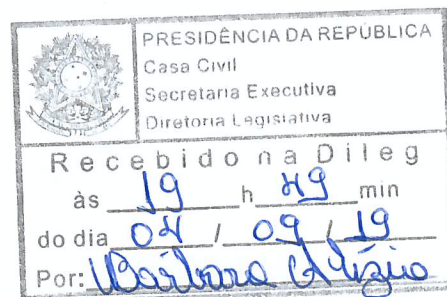 PRESIDÊNCIA DA REPÚBLICA
Casa Civil
Secretaria Executiva
Diretoria Legislativa
Recebido na Dileg
às 19 h 49 min
do dia 04 / 09 / 19
Por: Bárbara